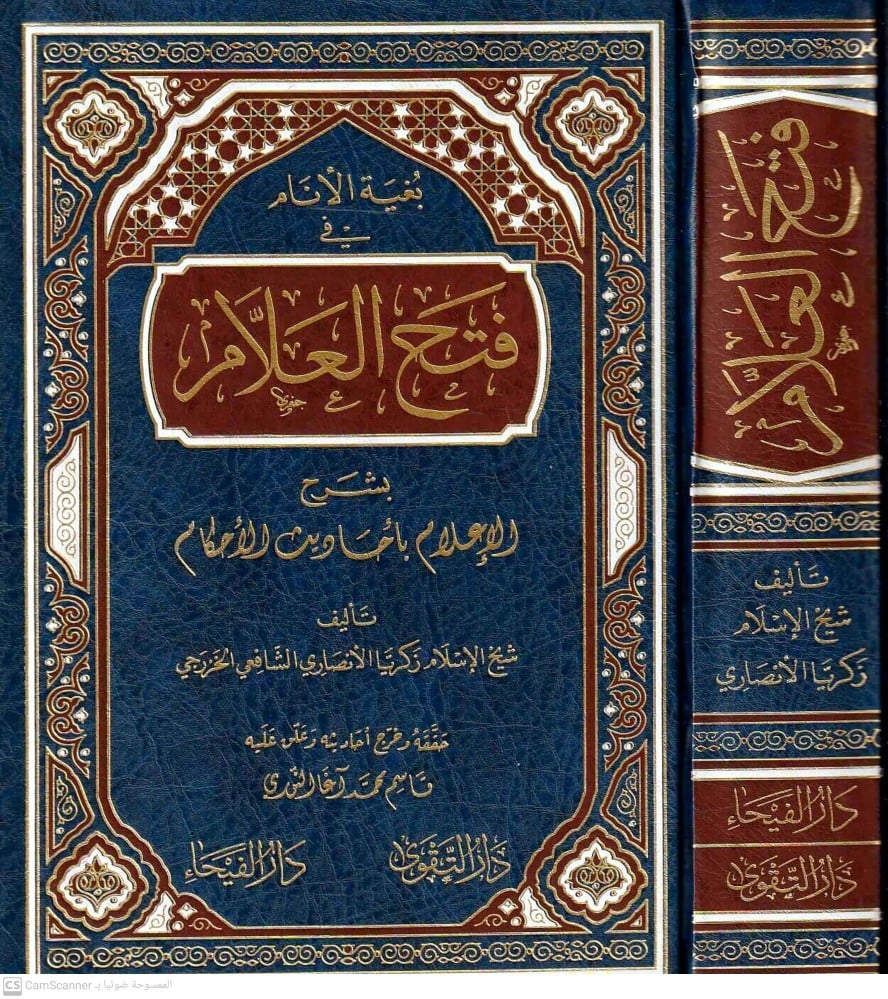 بُغية الأنام
في
فتح العلَّام
بشرح
الإعلام بأحاديث الأحكام
تأليف
شيخ الإسلام زكريا الأنصاري الشافعي الخزرجي
حققه وخرج أحاديثه وعلق عليه
قاسم محمد آغا النوري
دار التقوى
دار الفيحاء
فتح العلام
تأليف
شيخ الإسلام
زكريا الأنصاري
دار الفيحاء
دار التقوى
CS CamScanner الممسوحة ضوئيا بـ